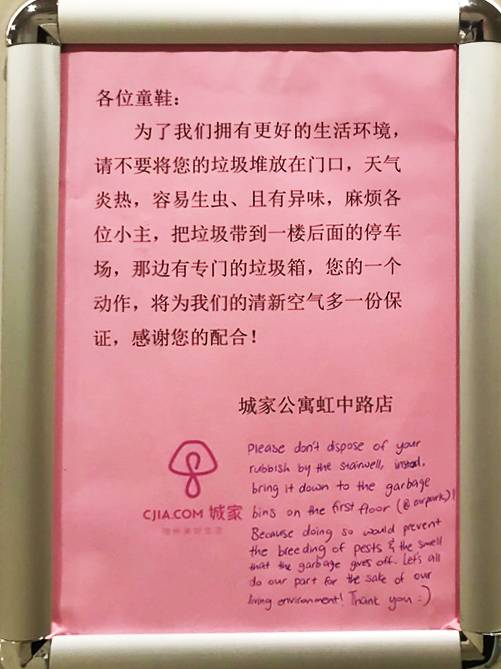 各位童鞋：
为了我们拥有更好的生活环境，
请不要将您的垃圾堆放在门口，天气
炎热，容易生虫、且有异味，麻烦各
位小主，把垃圾带到一楼后面的停车
场，那边有专门的垃圾箱，您的一个
动作，将为我们的清新空气多一份保
证，感谢您的配合！
城家公寓虹中路店
CJIA.COM 城家
Please don't dispose of your
rubbish by the stairwell, instead,
bring it down to the garbage
bins on the first floor (@ carpark)!
Because doing so would prevent
the breeding of pests & the smell
that the garbage gives off. Let's all
do our part for the sake of our
living environment! Thank you :)